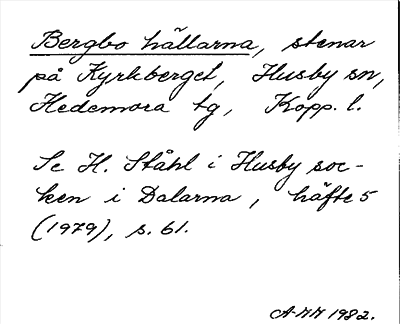 Bergbo hällarna, stenar
på Kyrkberget, Husby sn,
Hedemora tg, Kopp. l.
Se H. Ståhl i Husby soc-
ken i Dalarna, häfte 5
(1979), s. 61.
A-MM 1982.